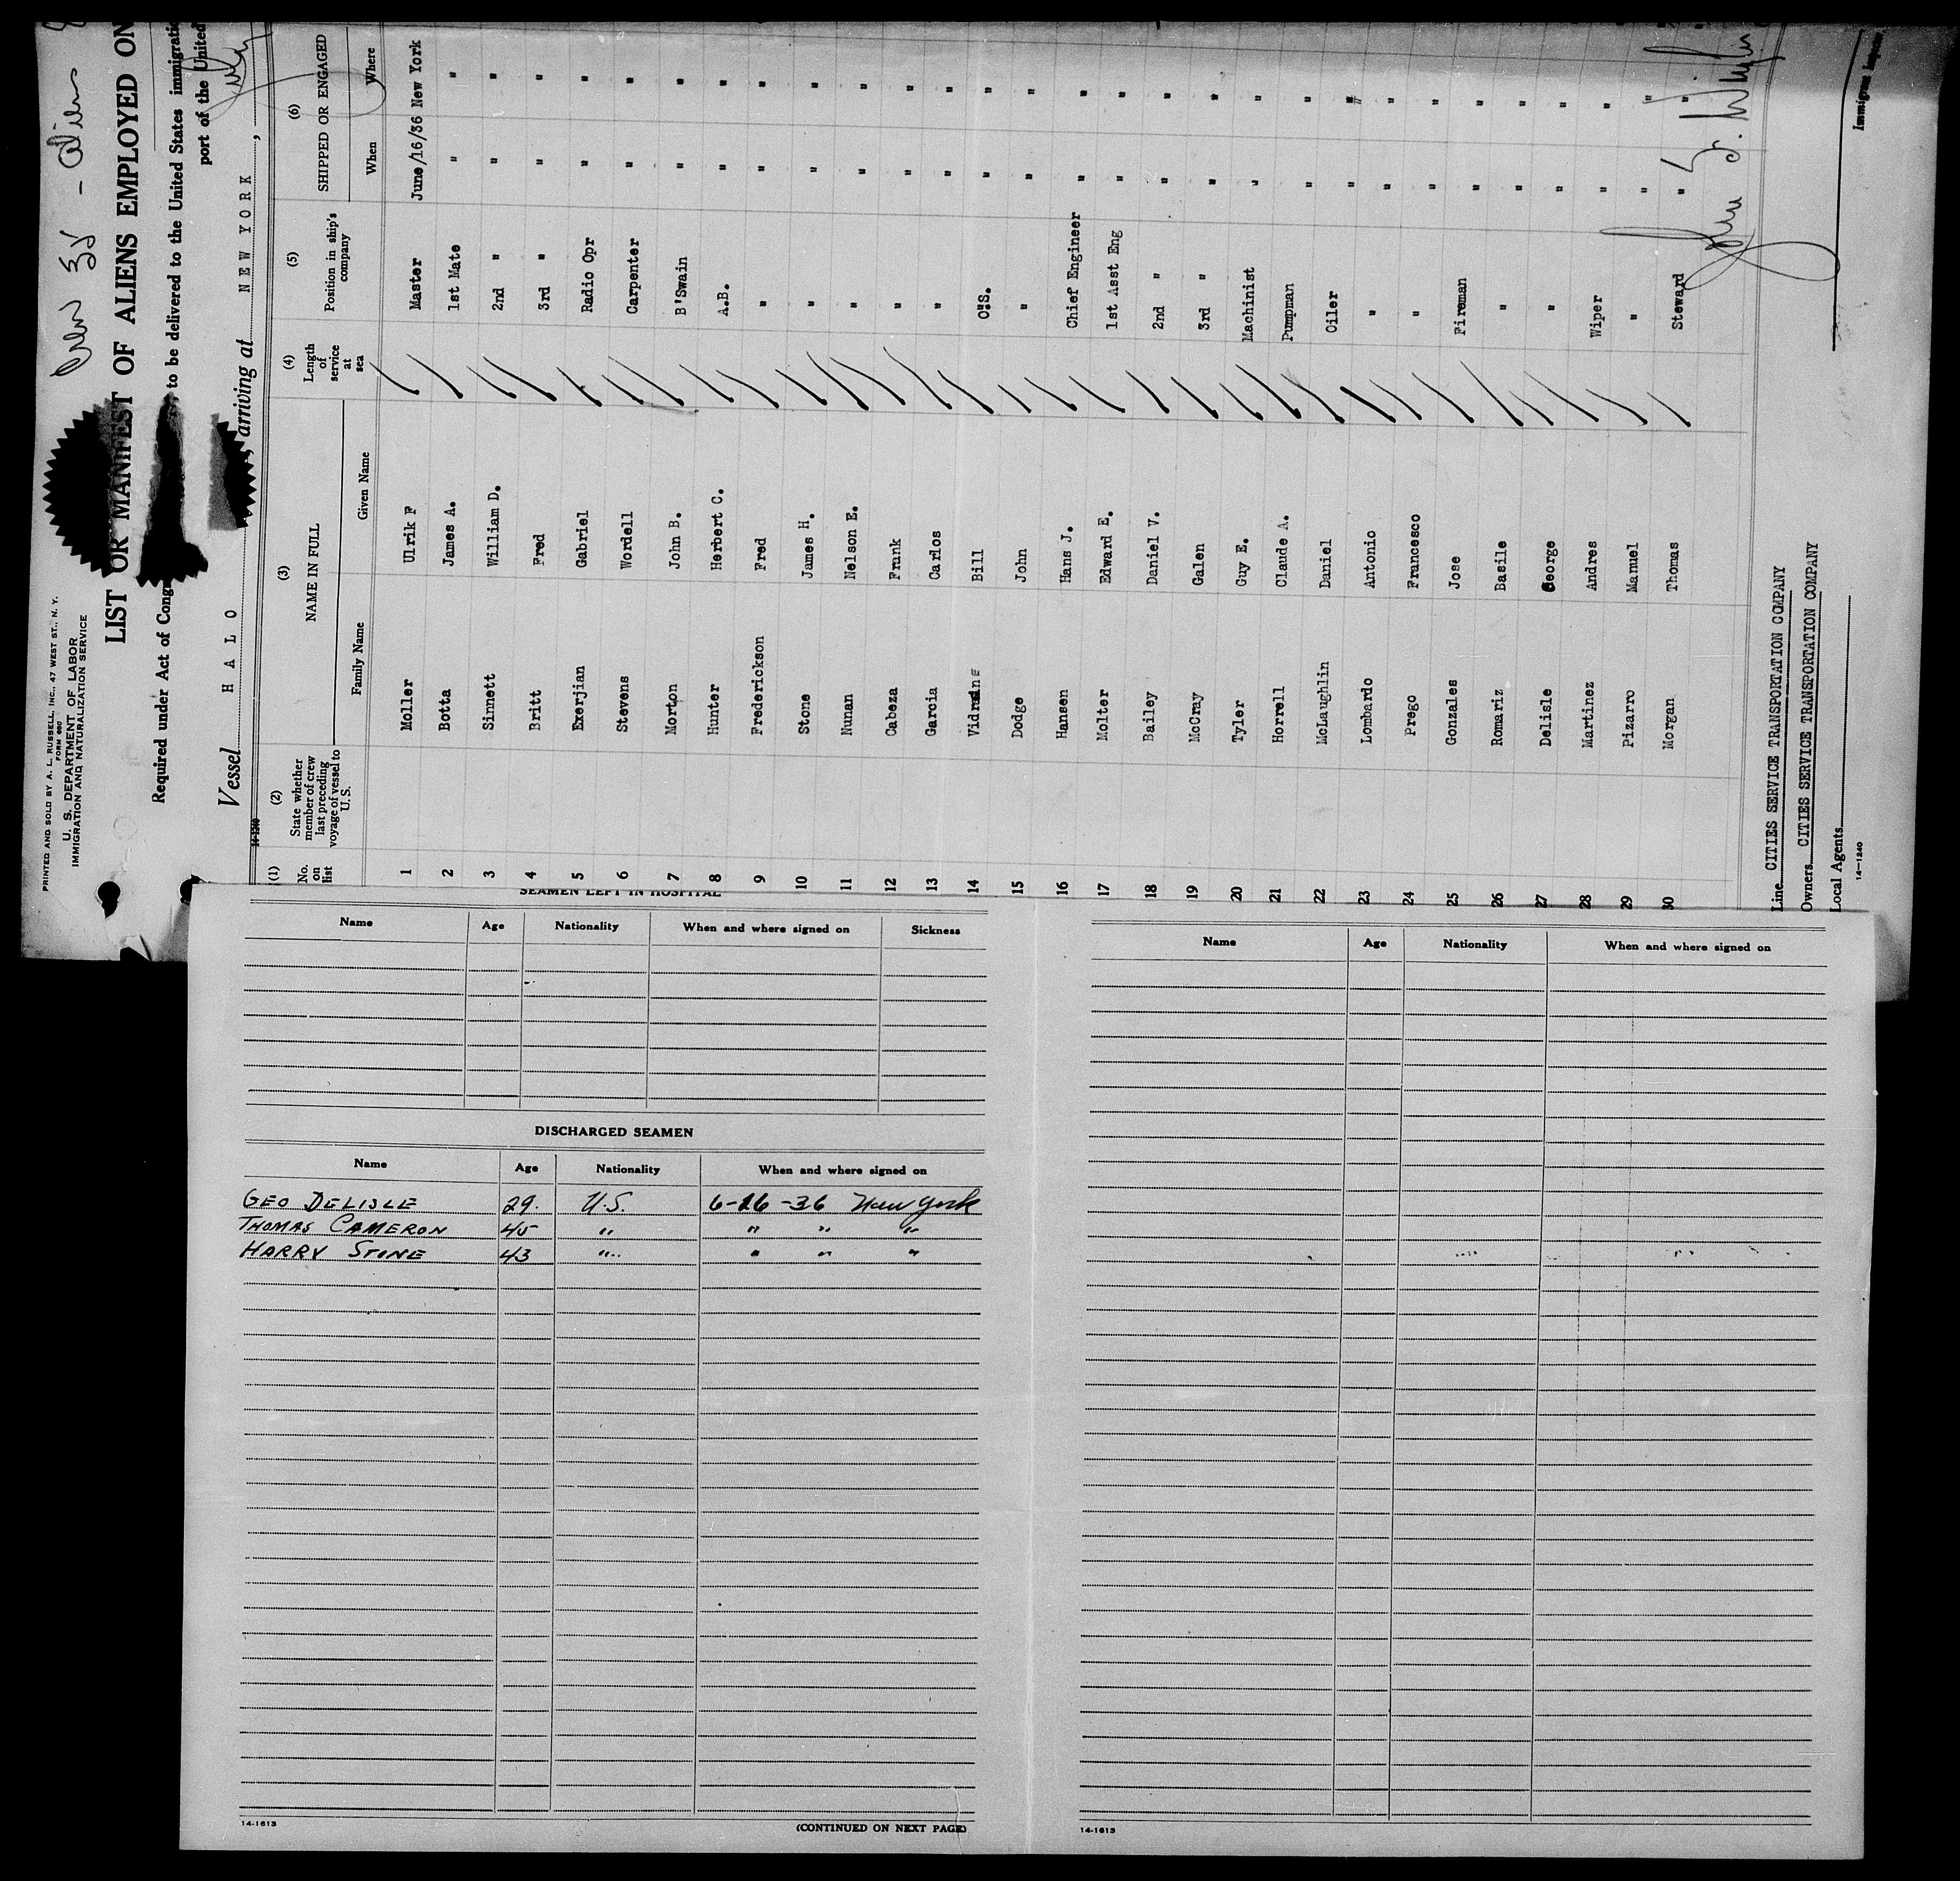 PRINTED AND SOLD BY A. L. RUSSELL, INC., 47 WEST ST., N. Y.
FORM 680
U. S. DEPARTMENT OF LABOR
IMMIGRATION AND NATURALIZATION SERVICE
Crew 35
LIST OR MANIFEST OF ALIENS EMPLOYED ON
Required under Act of Congr , to be delivered to the United States immigrati
port of the United
Vessel H A L O , arriving at NEW YORK ,
14-1240
(1) (2) (3) (4) (5) (6)
No. on list State whether member of crew last preceding voyage of vessel to U.S. NAME IN FULL Length of service at sea Position in ship's company SHIPPED OR ENGAGED
Family Name Given Name When Where
1 Moller Ulrik F Master June/16/36 New York
2 Botta James A. 1st Mate " "
3 Sinnett William D. 2nd " " "
4 Britt Fred 3rd " " "
5 Exerjian Gabriel Radio Opr " "
6 Stevens Wordell Carpenter " "
7 Morton John B. B'Swain " "
8 Hunter Herbert C. A.B. " "
9 Frederickson Fred " " "
10 Stone James H. " " "
11 Nunan Nelson E. " " "
12 Cabeza Frank " " "
13 Garcia Carlos " " "
14 Vidrine Bill O"S. " "
15 Dodge John " " "
16 Hansen Hans J. Chief Engineer " "
17 Molter Edward E. 1st Asst Eng " "
18 Bailey Daniel V. 2nd " " "
19 McCray Galen 3rd " " "
20 Tyler Guy E. Machinist " "
21 Horrell Claude A. Pumpman " "
22 McLaughlin Daniel Oiler " "
23 Lombardo Antonio " " "
24 Prego Francesco " " "
25 Gonzales Jose Fireman " "
26 Romariz Basile " " "
27 Delisle George " " "
28 Martinez Andres Wiper " "
29 Pizarro Manuel " " "
30 Morgan Thomas Steward " "
Line CITIES SERVICE TRANSPORTATION COMPANY
Owners CITIES SERVICE TRANSPORTATION COMPANY
Local Agents
Immigrant Inspector
14-1240
SEAMEN LEFT IN HOSPITAL
Name Age Nationality When and where signed on Sickness
DISCHARGED SEAMEN
Name Age Nationality When and where signed on
GEO DELISLE 29. U.S. 6-16-36 New York
THOMAS CAMERON 45 " " " "
HARRY STONE 43 " " " "
14-1613
(CONTINUED ON NEXT PAGE)
Name Age Nationality When and where signed on
14-1613